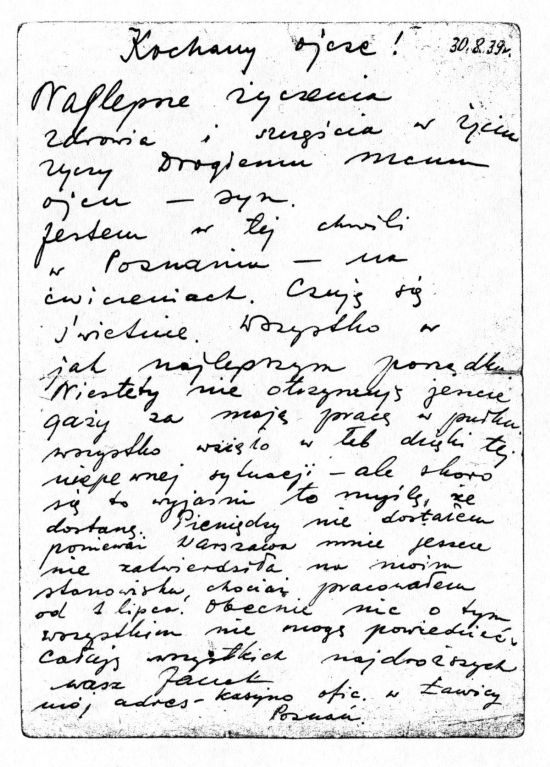 Kochany ojcze! 30.8.39r.
Najlepsze życzenia
zdrowia i szczęścia w życiu
życzy Drogiemu memu
ojcu — syn.
Jestem w tej chwili
w Poznaniu — na
ćwiczeniach. Czuję się
świetnie. Wszystko w
jak najlepszym porządku
Niestety nie otrzymuję jeszcze
gaży za moją pracę w pułku,
wszystko wzięło w łeb dzięki tej
niepewnej sytuacji — ale skoro
się to wyjaśni to myślę, że
dostanę. Pieniędzy nie dostałem
ponieważ Warszawa mnie jeszcze
nie zatwierdziła na moim
stanowisku, chociaż pracowałem
od 1 lipca. Obecnie nic o tym
wszystkim nie mogę powiedzieć.
Całuję wszystkich najdroższych
wasz Janek
mój adres - kasyno ofic. w Ławicy
Poznań.